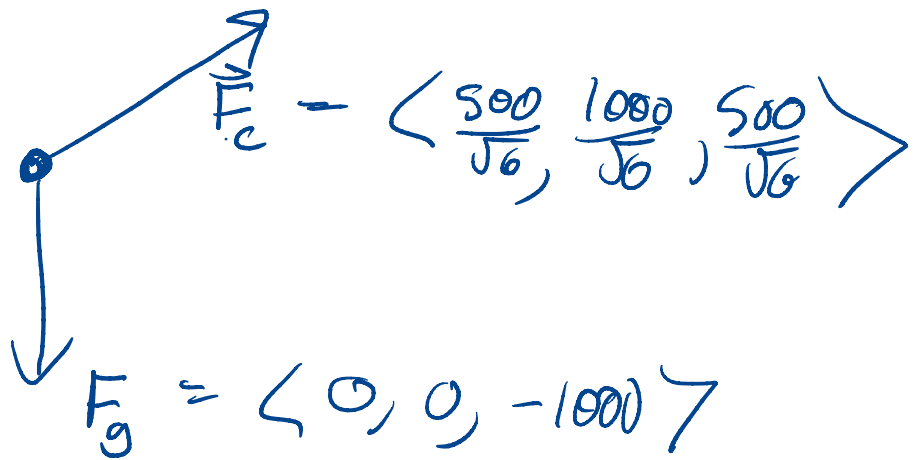 \vec{F}_c = < \frac{500}{\sqrt{6}}, \frac{1000}{\sqrt{6}}, \frac{500}{\sqrt{6}} >
F_g = < 0, 0, -1000 >